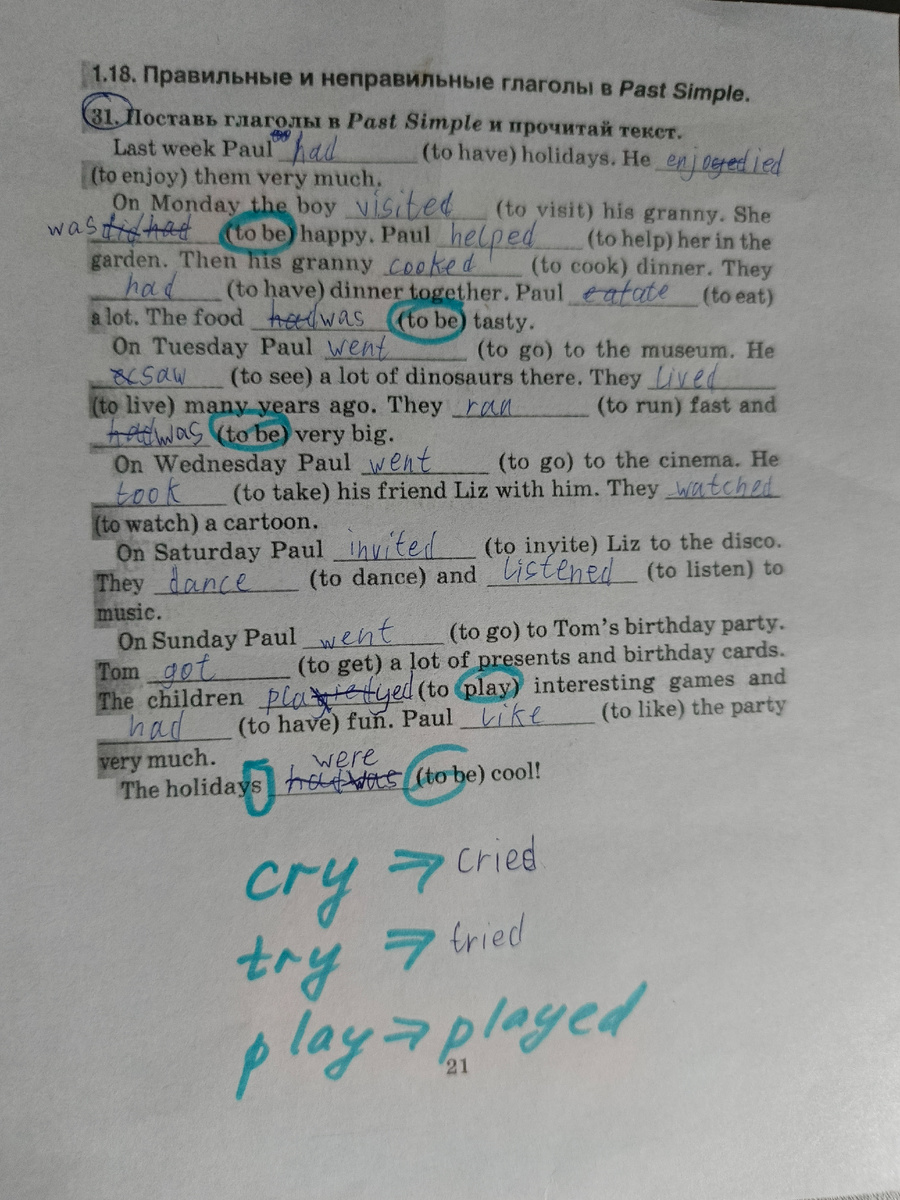 1.18. Правильные и неправильные глаголы в Past Simple.
31. Поставь глаголы в Past Simple и прочитай текст.
Last week Paul had (to have) holidays. He enjoyedied
(to enjoy) them very much.
On Monday the boy visited (to visit) his granny. She
was did had (to be) happy. Paul helped (to help) her in the
garden. Then his granny cooked (to cook) dinner. They
had (to have) dinner together. Paul eat ate (to eat)
a lot. The food had was (to be) tasty.
On Tuesday Paul went (to go) to the museum. He
saw (to see) a lot of dinosaurs there. They lived
(to live) many years ago. They ran (to run) fast and
had was (to be) very big.
On Wednesday Paul went (to go) to the cinema. He
took (to take) his friend Liz with him. They watched
(to watch) a cartoon.
On Saturday Paul invited (to invite) Liz to the disco.
They dance (to dance) and listened (to listen) to
music.
On Sunday Paul went (to go) to Tom's birthday party.
Tom got (to get) a lot of presents and birthday cards.
The children played (to play) interesting games and
had (to have) fun. Paul like (to like) the party
very much.
were
The holidays had was (to be) cool!
cry ⇒ cried
try ⇒ tried
play ⇒ played
21